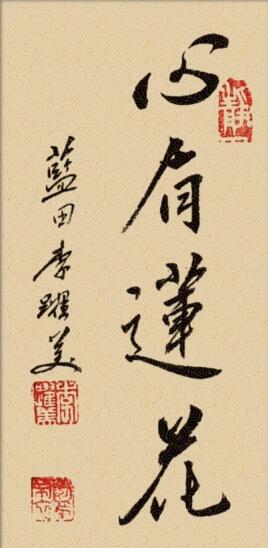 心有蓮花
藍田李躍美